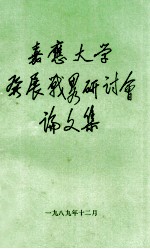 嘉應大学
发展战畧研討會
論文集
一九八九年十二月